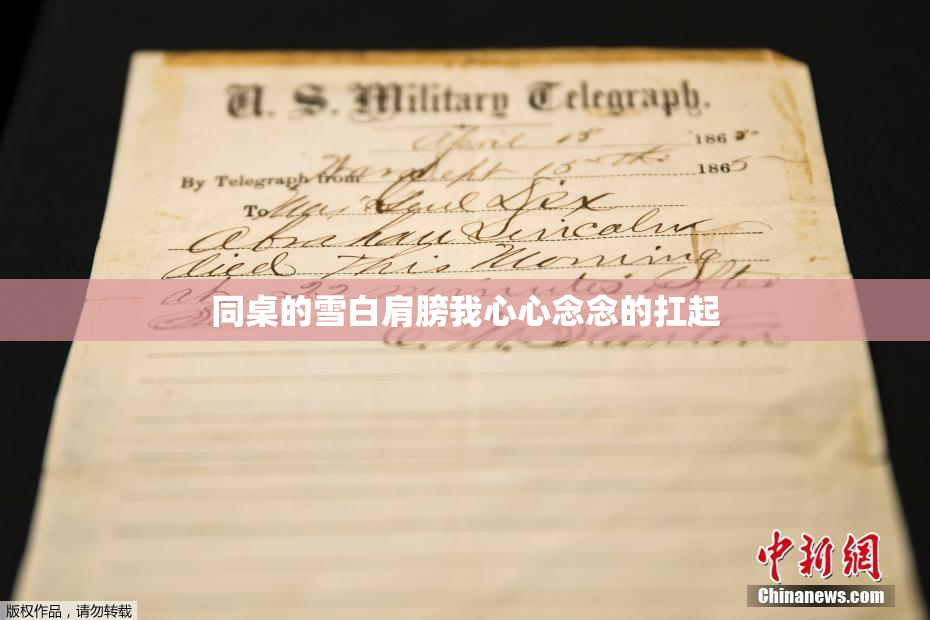 U. S. Military Telegraph.
April 15 1865
By Telegraph from War Dept 15th 1865
To Maj Genl Dix
Abraham Lincoln
died This Morning
at 22 minutes after
同桌的雪白肩膀我心心念念的扛起
E. M. Stanton
中新网
Chinanews.com
版权作品，请勿转载